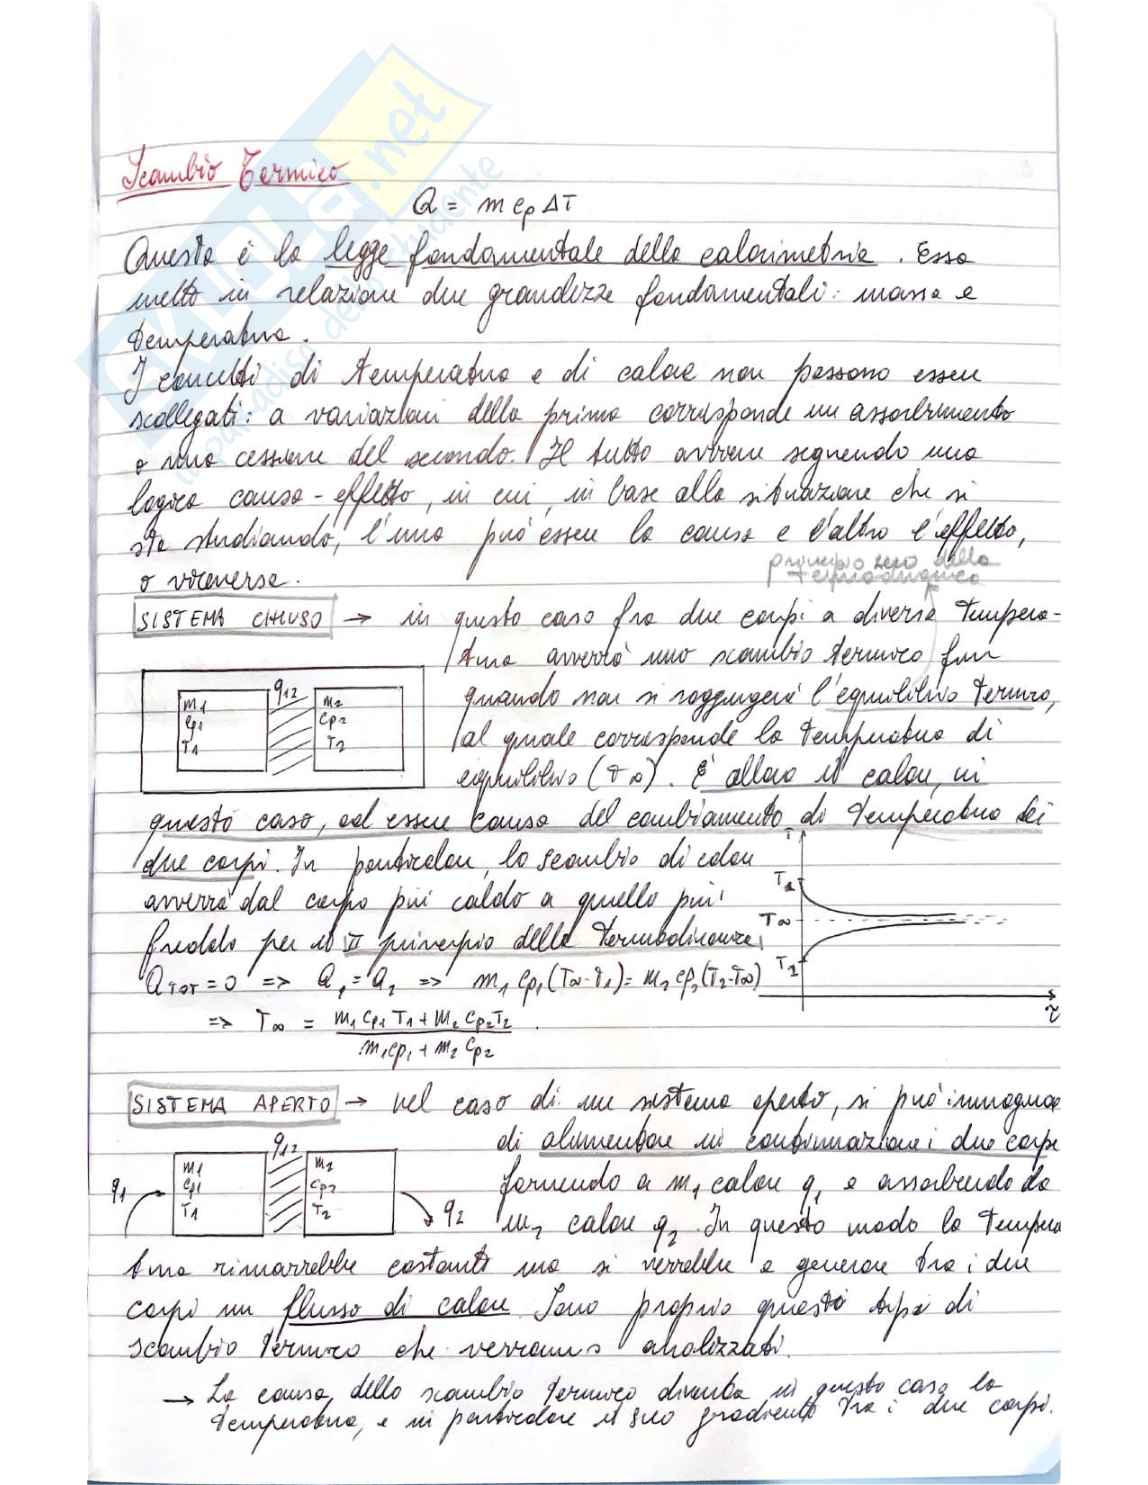 Scambio Termico
Q = m cp ΔT
Questa è la legge fondamentale della calorimetria. Essa
mette in relazione due grandezze fondamentali: massa e
temperatura.
I concetti di temperatura e di calore non possono essere
scollegati: a variazioni della prima corrisponde un assorbimento
o una cessione del secondo. Il tutto avviene seguendo una
logica causa-effetto, in cui, in base alla situazione che si
sta studiando, l'una può essere la causa e l'altro l'effetto,
o viceversa.
principio zero della
termodinamica
SISTEMA CHIUSO → in questo caso fra due corpi a diversa tempera-
tura avverrà uno scambio termico fin
quando non si raggiungerà l'equilibrio termico,
al quale corrisponde la temperatura di
equilibrio (T∞). È allora il calore, in
m1 cp1 T1
q12
m2 cp2 T2
questo caso, ad essere causa del cambiamento di temperatura dei
due corpi. In particolare, lo scambio di calore
avverrà dal corpo più caldo a quello più
freddo per il II principio della termodinamica.
T
T2
T∞
T1
τ
QTOT = 0 => Q1 = Q2 => m1 cp1 (T∞-T1) = m2 cp2 (T2-T∞)
=> T∞ = m1 cp1 T1 + m2 cp2 T2 / m1 cp1 + m2 cp2 .
SISTEMA APERTO → nel caso di un sistema aperto, si può immaginare
di alimentare in continuazione i due corpi
fornendo a m1 calore q1 e assorbendo da
m2 calore q2. In questo modo la tempera
q1
m1 cp1 T1
q12
m2 cp2 T2
q2
tura rimarrebbe costante ma si verrebbe a generare tra i due
corpi un flusso di calore. Sono proprio questi tipi di
scambio termico che verranno analizzati.
→ La causa dello scambio termico diventa in questo caso la
temperatura, e in particolare il suo gradiente tra i due corpi.